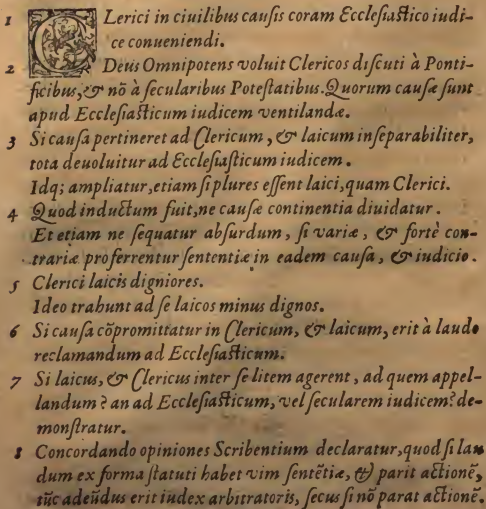 1 CLerici in ciuilibus causis coram Ecclesiastico iudi-
ce conueniendi.
2 Deus Omnipotens voluit Clericos discuti à Ponti-
ficibus, & nõ à secularibus Potestatibus. Quorum causæ sunt
apud Ecclesiasticum iudicem ventilandæ.
3 Si causa pertineret ad Clericum, & laicum inseparabiliter,
tota deuoluitur ad Ecclesiasticum iudicem.
Idq; ampliatur, etiam si plures essent laici, quam Clerici.
4 Quod inductum fuit, ne causæ continentia diuidatur.
Et etiam ne sequatur absurdum, si variæ, & fortè con-
trariæ proferrentur sententiæ in eadem causa, & iudicio.
5 Clerici laicis digniores.
Ideo trahunt ad se laicos minus dignos.
6 Si causa cõpromittatur in Clericum, & laicum, erit à laudo
reclamandum ad Ecclesiasticum.
7 Si laicus, & Clericus inter se litem agerent, ad quem appel-
landum? an ad Ecclesiasticum, vel secularem iudicem? de-
monstratur.
8 Concordando opiniones Scribentium declaratur, quod si lau
dum ex forma statuti habet vim sentẽtiæ, & parit actionẽ,
tũc adeũdus erit iudex arbitratoris, secus si nõ parat actionẽ.